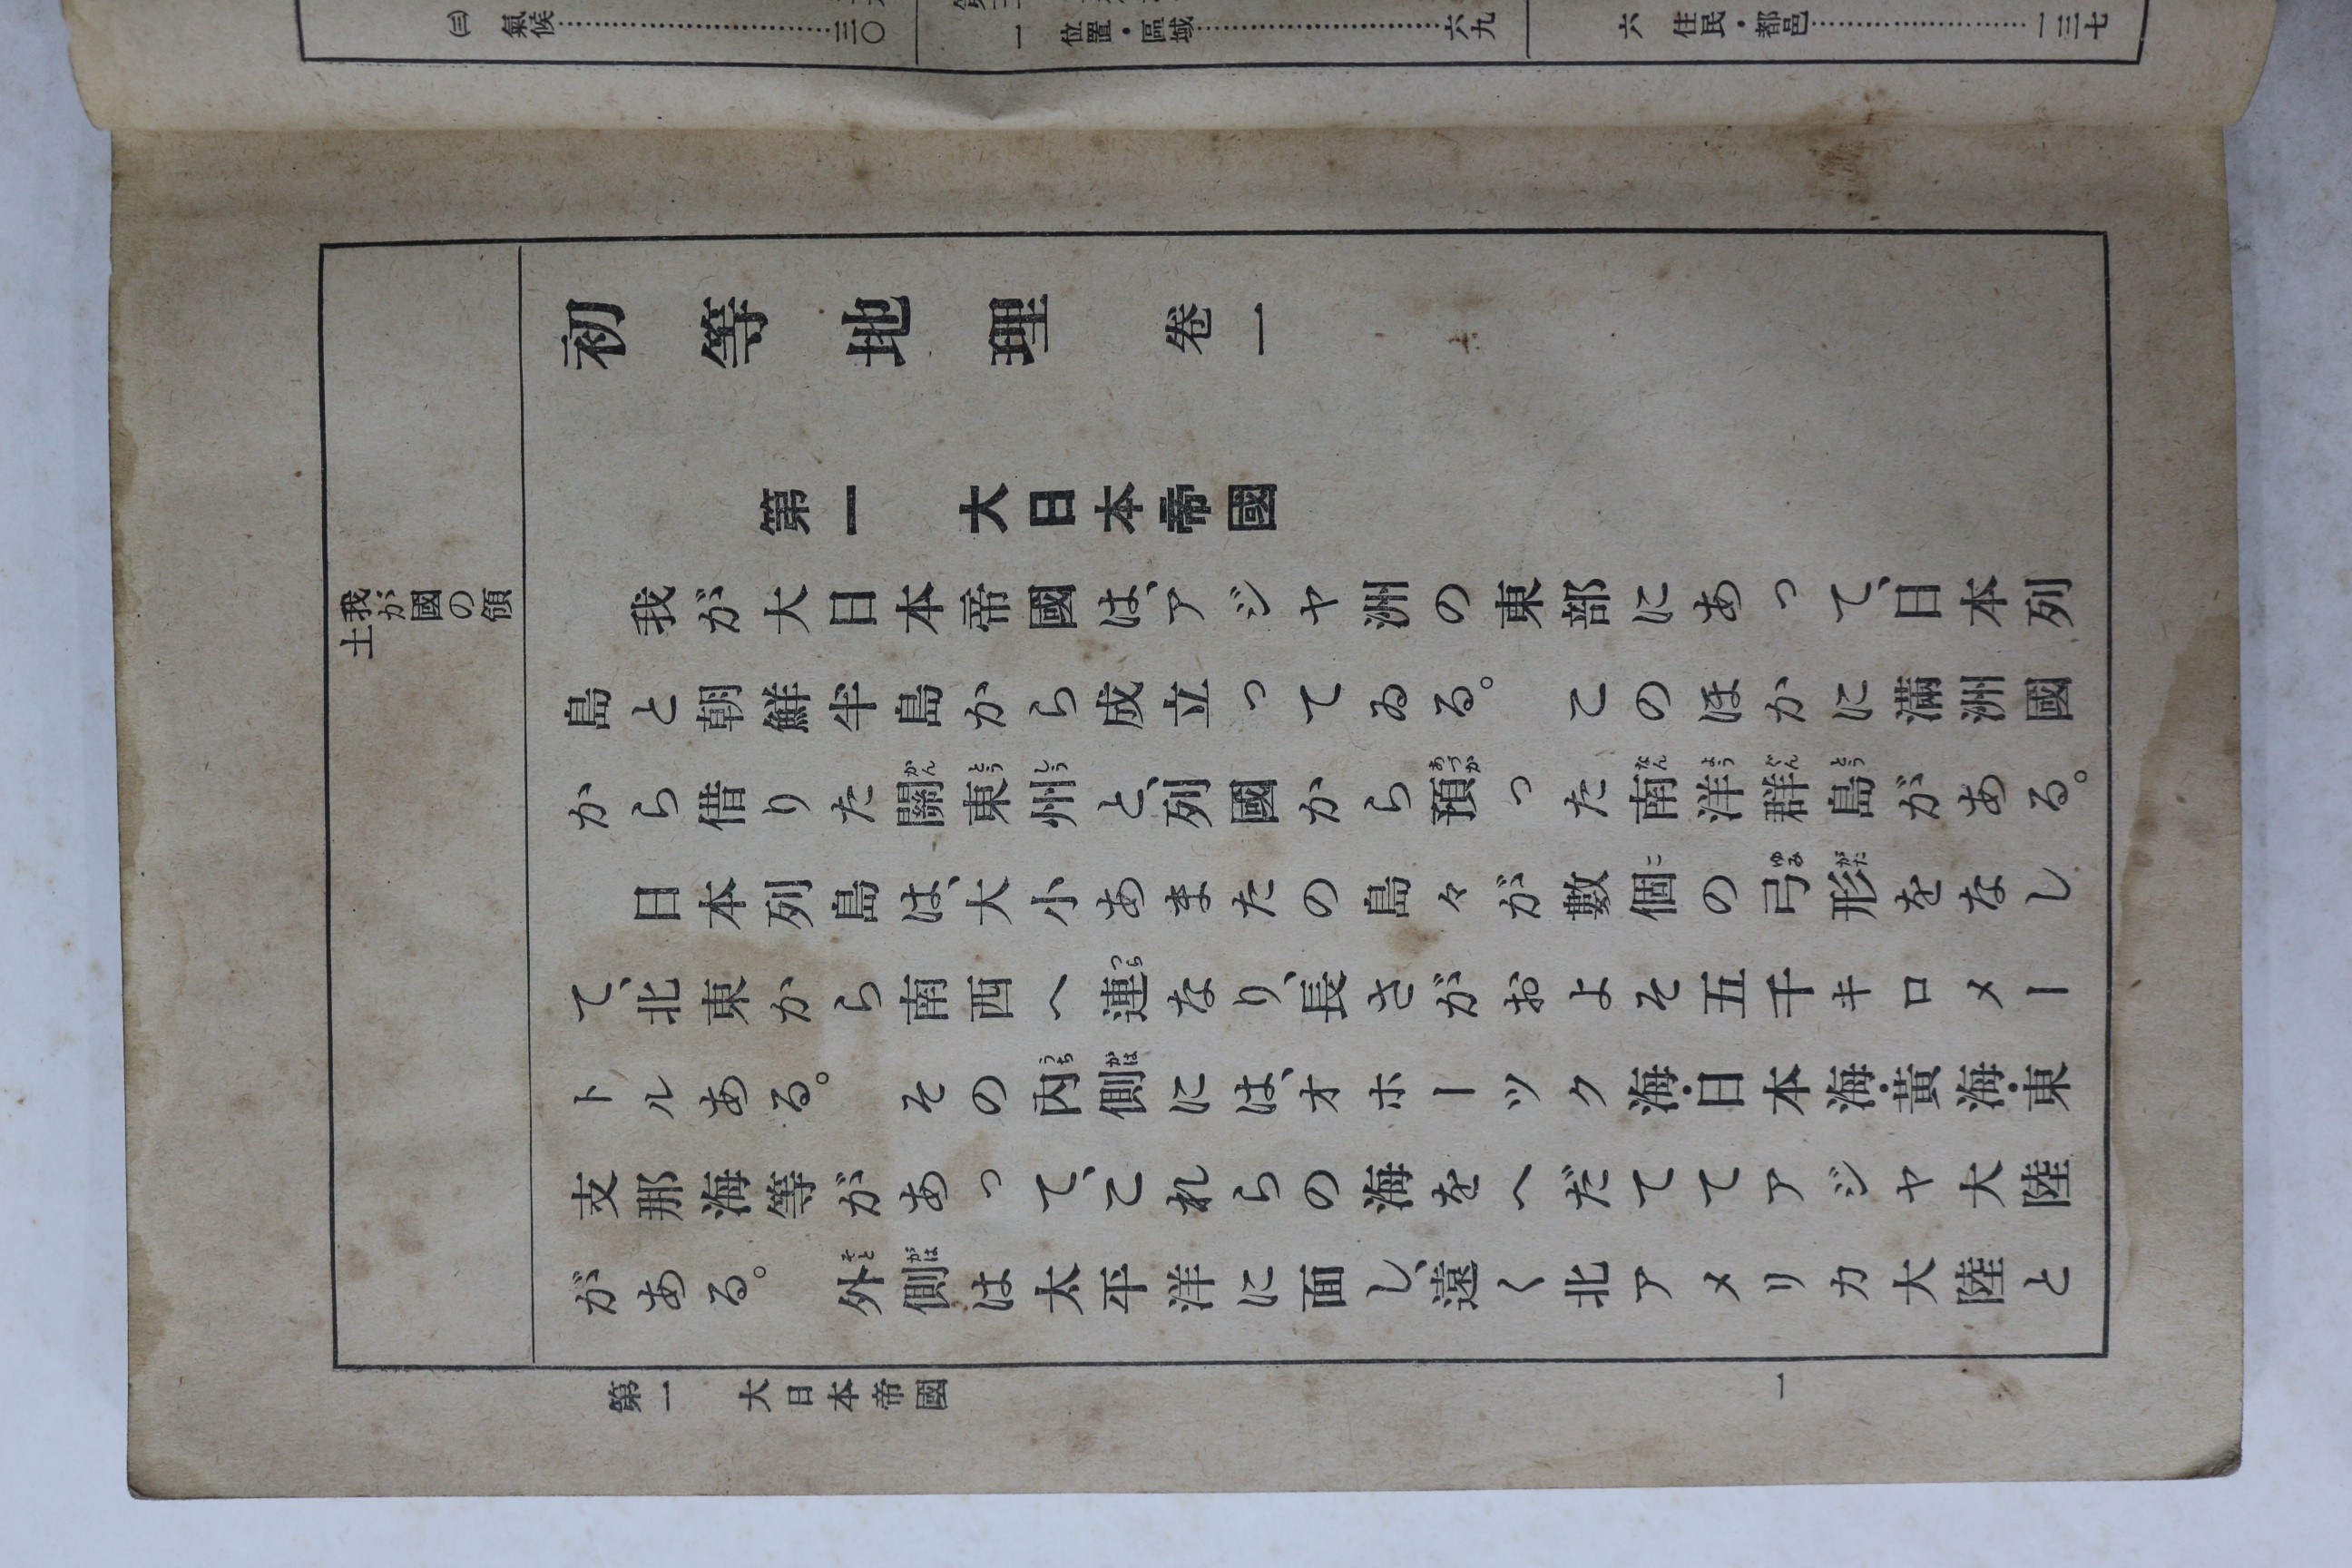 ㈢ 氣候……………………三〇
一 位置・區域……………………六九
六 住民・都邑……………………一三七
初等地理 卷一
第一 大日本帝國
我が國の領
土
我が大日本帝國は、アジヤ洲の東部にあつて、日本列
島と朝鮮半島から成立つてゐる。このほかに滿洲國
かん とう しう あづか なん よう ぐん とう
から借りた關東州と、列國から預つた南洋群島がある。
こ ゆみ がた
日本列島は、大小あまたの島々が數個の弓形をなし
つら
て、北東から南西へ連なり、長さがおよそ五千キロメー
うち がは
トルある。その內側には、オホーツク海・日本海・黃海・東
支那海等があつて、これらの海をへだててアジヤ大陸
そと がは
がある。外側は太平洋に面し、遠く北アメリカ大陸と
第一 大日本帝國
一